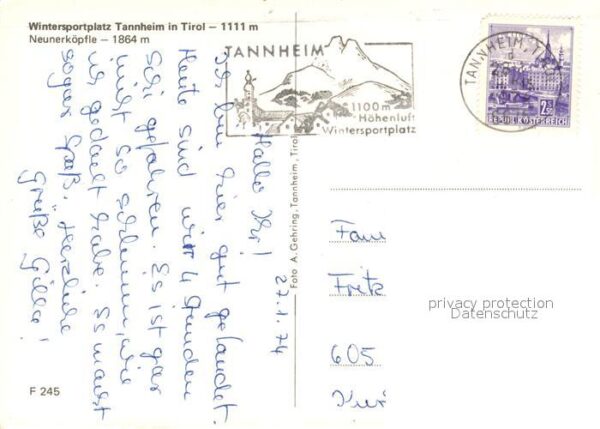 Wintersportplatz Tannheim in Tirol – 1111 m
Neunerköpfle – 1864 m
TANNHEIM
1100m
Höhenluft
Wintersportplatz
TANNHEIM, T
REPUBLIK ÖSTERREICH
2.50
27.1.74
Hallo Ihr!
Ich bin hier gut gelandet.
Heute sind wir 4 Stunden
Ski gefahren. Es ist gar
nicht so schlimm, wie
ich gedacht habe. Es macht
sogar Spaß. Herzliche
Grüße
Foto A. Gehring, Tannheim, Tirol
Fam
Fritz
605
privacy protection
Datenschutz
F 245